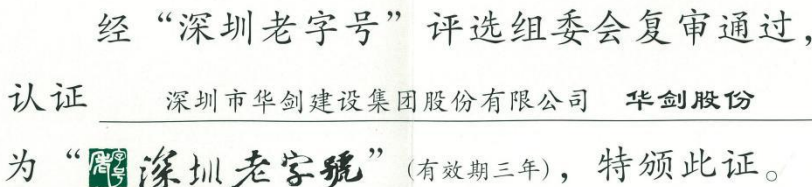 经“深圳老字号”评选组委会复审通过，
认证 深圳市华剑建设集团股份有限公司 华剑股份
为“老字号 深圳老字號”(有效期三年)，特颁此证。